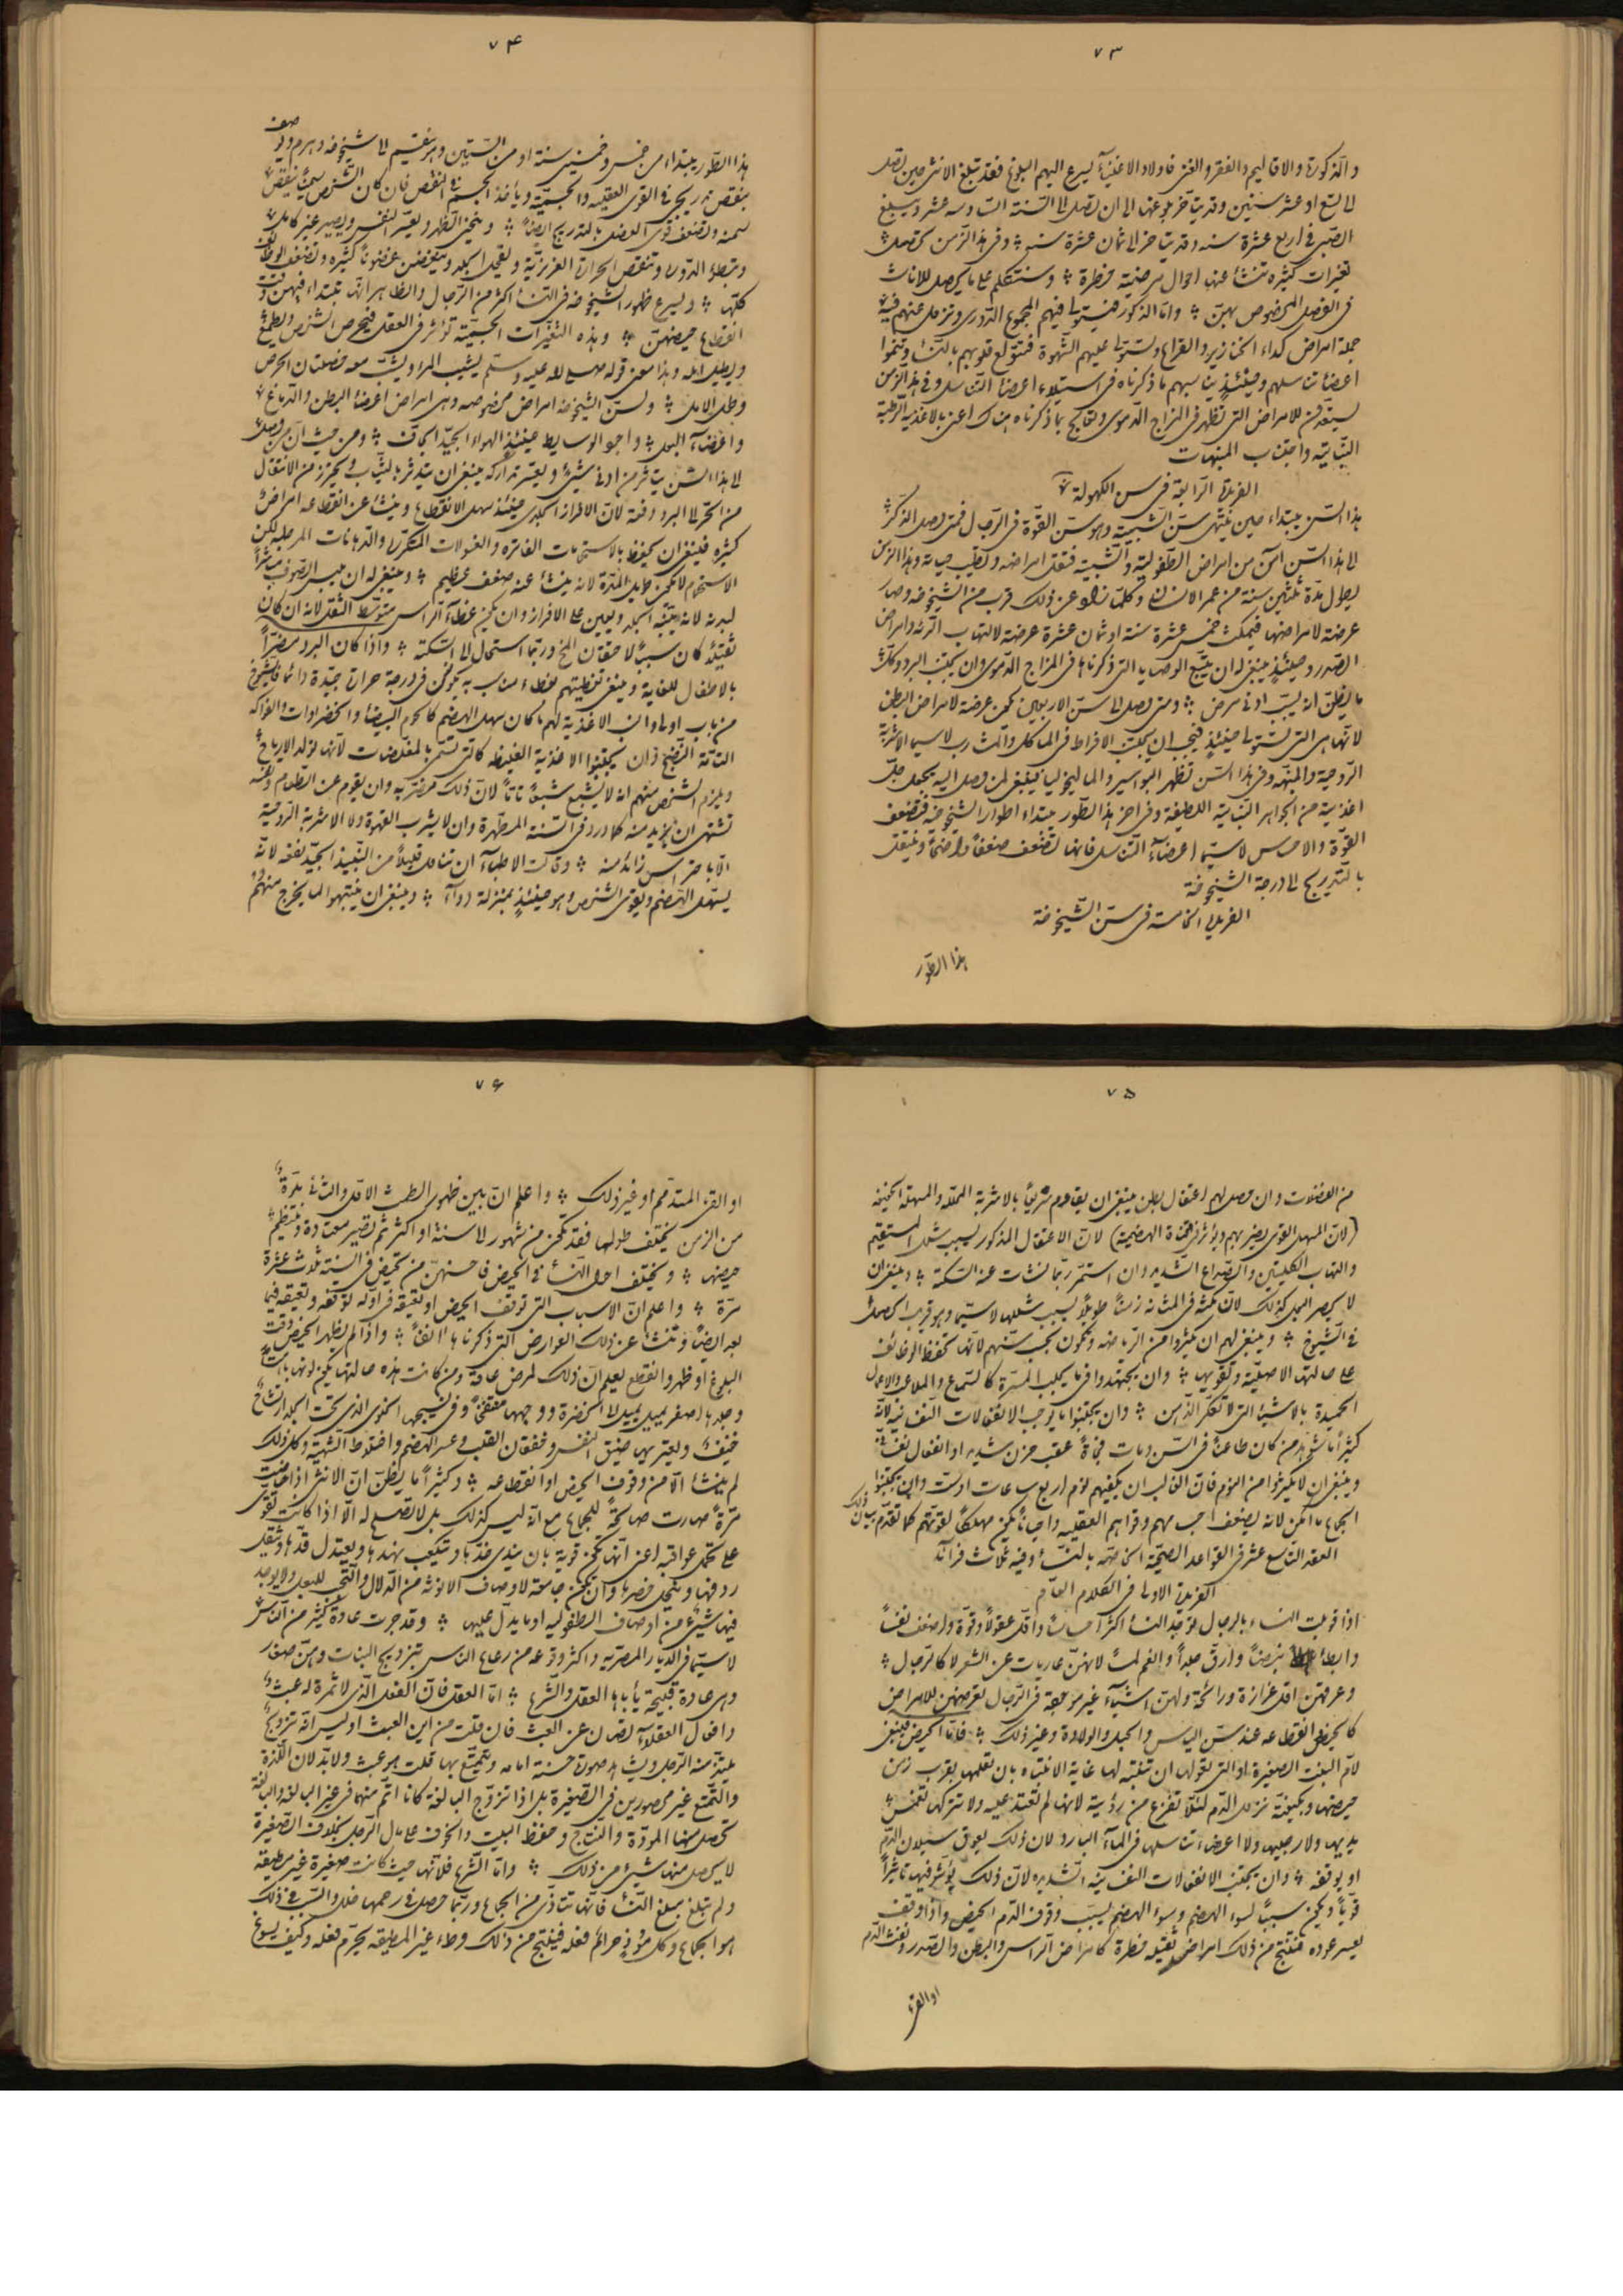 ٧٣
والذكورة والاقاليم والفقر والغنى فاولاد الاغنيآء يسرع اليهم البلوغ فقد تبلغ الانثى حين تصل
الى تسع او عشر سنين وقد يتأخر بلوغها الى ان تصل الى السنة السادسه عشر ويبلغ
الصبى فى اربع عشرة سنه وقد يتأخر الى ثمان عشرة سنه وفى هذا الزمن تحصل
تغيرات كثيره تنشأ عنها احوال مرضية خطرة وسنتكلم على ما يحصل للاناث
فى الفصل المخصوص بهن واما الذكور فيستولى فيهم المجموع الدورى وتزول عنهم فيه
جملة امراض كداء الخنازير والقراع وتستولى عليهم الشهوة فتتولع قلوبهم بالنساء وتنموا
اعضاء تناسلهم وحينئذ يناسبهم ما ذكرناه فى استيلاء اعضاء التناسل وفى هذا الزمن
يستعدون للامراض التى تظهر فى المزاج الدموى وتعالج بما ذكرناه هناك اعنى بالاغذية الرطبة
النباتية واجتناب المنبهات
الفريدة الرابعة فى سن الكهولة
هذا السن يبتداء حين ينتهى سن الشبيبة وهو سن القوة فى الرجال فمتى وصل الذكر
الى هذا السن امن من امراض الطفولية والشبيبة فتقل امراضه وتطيب حياته وهذا الزمن
يطول مدة ثلثين سنة من عمر الانسان وكلما زاد عن ذلك قرب من الشيخوخه وصار
عرضة لامراضها فيمكث خمس عشرة سنة او ثمان عشرة عرضة لالتهاب الرئه وامراض
الصدر وحينئذ ينبغى له ان يتبع الوصايا التى ذكرناها فى المزاج الدموى وان يجتنب البرد وكل
ما يظن انه يسبب ادنى مرض ومتى وصل الى سن الاربعين يكون عرضة لامراض البطن
لانها هى التى تستولى حينئذ فيجب ان يجتنب الافراط فى المآكل والمشارب لا سيما الاشربة
الروحية والمنبهه وفى هذا السن تظهر البواسير والماليخوليا فينبغى لمن وصل اليه يجعل جل
اغذيته من الجواهر النباتية اللطيفة وفى اخر هذا الطور يبتداء اطوار الشيخوخه فتضعف
القوة والاحساس لا سيما اعضآء التناسل فانها تضعف ضعفا واضحا وينتقل
بالتدريج الى درجة الشيخوخة
الفريدة الخامسة فى سن الشيخوخة
هذا الطور
٧۴
هذا الطور يبتداء من خمس وخمسين سنة او من الستين وهو ينقسم الى شيخوخه وهرم وفيه
ضعف
ينقص تدريجى فى القوى العقليه والجسميه ويأخذ الجسم فى النقص فان كان الشخص سمينا ينقص
سمنه وتضعف قوى العضل بالتدريج ايضا وينحنى الظهر ويعسر النفس ويصير غير كامل
وتبطؤ الدورة وتنقص الحرارة الغريزية ويقحل الجلد ويتغضن غضونا كثيره وتضعف الوظائف
كلها ويسرع ظهور الشيخوخه فى النساء اكثر من الرجال والظاهر انها تبتداء فيهن وقت
انقطاع حيضهن وهذه التغيرات الجسمية تؤثر فى العقل فيحرص الشخص ويطمع
ويطيل امله وهذا معنى قوله صلى الله عليه وسلم يشيب المرء ويشب معه خصلتان الحرص
وطول الامل ولسن الشيخوخة امراض مخصوصه وهى امراض اعضاء البطن والدماغ
واعضآء البول واجود الوسايط حينئذ الهواء الجيد الجاف ومن حيث ان من وصل
الى هذا السن يتأثر من ادنى شيئ ويعسر تداركه ينبغى ان يتدثر بالثياب ويحترز من الانتقال
من الحر الى البرد دفعة لان الافراز الجلدى حينئذ سهل الانقطاع وينشأ عن انقطاعه امراض
كثيره فينبغى ان يحفظ بالاستحمامات الفاتره والغسولات المتكررة والدهانات المرطبه لكن
الاستحمام لا يكون طويل المدة لانه ينشأ عنه ضعف عظيم وينبغى له ان يلبس الصوف مباشراً
لبدنه لانه ينبه الجلد ويعين على الافراز وان يكون غطاء الرأس متوسط الثقل لانه ان كان
ثقيلا كان سببا لاحتقان المخ وربما استحال الى السكتة واذا كان البرد مضراً
بالاطفال للغاية وينبغى تغطيتهم بغطاء مناسب به يكونون فى درجة حرارة جيدة دائما فالشيوخ
من باب اولى وانسب الاغذية لهم ما كان سهل الهضم كاللحوم البيضاء والخضراوات والفواكه
التامة النضج وان يجتنبوا الاغذية الغليظه كالتى تسمى بالمغلظات لانها تولد الارياح
ويلزم الشخص منهم انه لا يشبع شبعا تاما لان ذلك مضر به وان يقوم عن الطعام ونفسه
تشتهى ان يزيد منه كما ورد فى السنة المطهرة وان لا يشرب القهوة ولا الاشربة الروحية
الا باحتراس زائد منه وقالت الاطبآء ان تناول قليلا من النبيذ الجيد نفعه لانه
يسهل الهضم ويقوى الشخص وهو حينئذ بمنزلة دوآء وينبغى ان ينتبهوا لما يخرج منهم
٧۵
من الفضلات وان حصل لهم اعتقال بطن ينبغى ان يقاوم سريعا بالاشربة المحلله والمسهلة الخفيفه
(لان المسهل القوى يضر بهم ويؤثر فى القناة الهضمية) لان الاعتقال المذكور يسبب شلل المستقيم
والتهاب الكليتين والصداع الشديد وان استمر ربما نشأت عنه السكتة وينبغى ان
لا يحصر البول كذلك لان مكثه فى المثانه زمنا طويلا يسبب شللها لا سيما وهو قريب الحصول
فى الشيوخ وينبغى لهم ان يكثروا من الرياضه وتكون بحسب سنهم لانها تحفظ الوظائف
على حالتها الاصلية وتقويها وان يجتهدوا فيما يجلب المسرة كالسماع والملاعب والاعمال
الحميدة بالاشياء التى لا تعكر الذهن وان يجتنبوا ما يوجب الانفعالات النفسانيه لانه
كثيراً ما شوهد من كان طاعنا فى السن ومات فجأة عقب حزن شديد او انفعال نفسانى
وينبغى ان لا يكثروا من النوم فان الغالب ان يكفيهم نوم اربع ساعات او ست وان يجتنبوا
الجماع ما امكن لانه يضعف اجسامهم وقواهم العقليه واحيانا يكون مهلكا لقوتهم كما تقدم بيان ذلك
العقد التاسع عشر فى القواعد الصحية الخاصة بالنساء وفيه ثلاث فرائد
الفريدة الاولى فى الكلام العام
اذا قوبلت النساء بالرجال توجد النساء اكثر احساسا واقل عقولا وقوة واضعف نفسا
وابطأ نبضا وارق جلدا وانعم لمسا لانهن عاريات عن الشعر لا كالرجال
وعرقهن اقل غزارة ورائحة ولهن اشيآء غير موجودة فى الرجال تعرضهن للامراض
كالحيض وانقطاعه عند سن اليأس والحبل والولادة وغير ذلك فاما الحيض فينبغى
لام البنت الصغيرة او التى تعولها ان تنتبه لها غاية الانتباه بان تعلمها بقرب زمن
حيضها وبكيفية نزول الدم لئلا تفزع من رؤيته لانها لم تعتد عليه ولا تتركها تغمس
يديها ولا رجليها ولا اعضاء تناسلها فى المآء البارد لان ذلك يعوق سيلان الدم
او يوقفه وان يجتنب الانفعالات النفسانيه الشديده لان ذلك يؤثر فيها تأثيراً
قويا ويكون سببا لسوء الهضم وسوء الهضم يسبب وقوف الدم الحيض واذا وقف
يعسر عوده فينتج من ذلك امراض ثقيله خطرة كامراض الرأس والبطن والصدر ونفث الدم
او القئ
٧۶
او القئ المتدمم او غير ذلك واعلم ان بين ظهور الطمث الاول والثانى مدة
من الزمن يختلف طولها فقد تكون من شهور الى سنة او اكثر ثم تصير معتادة وينتظم
حيضها ويختلف احوال النساء فى الحيض فاحسنهن من تحيض فى السنة ثلاث عشرة
مرة واعلم ان الاسباب التى توقف الحيض او تعيقه فى اوله توقفه وتعيقه فيما
بعد ايضا وتنشأ عن ذلك العوارض التى ذكرناها انفا واذا لم يظهر الحيض وقت
البلوغ او ظهر وانقطع يعلم ان ذلك لمرض عادة ومن كانت هذه حالتها يكون لونها باهتا
وجلدها اصفر يميل الى الخضرة ووجهها منتفخا وفى نسيجها الخلوى الذى تحت الجلد ارتشاح
خفيف ويعتريها ضيق النفس وخفقان القلب وعسر الهضم واختلاط الشهية وكل ذلك
لم ينشأ الا من وقوف الحيض او انقطاعه وكثيراً ما يظن ان الانثى اذا حاضت
مرة صارت صالحة للجماع مع انه ليس كذلك بل لا تصلح له الا اذا كانت تقوى
على تحمل عواقبه اعنى انها تكون قوية بان يندى خدها ويتكعب نهدها ويعتدل قدها ويثقل
ردفها وينحل خصرها وان تكون جامعة لاوصاف الانوثه من الدلال والتجلى للبعل ولا يوجد
فيها شيئ من اوصاف الطفوليه او ما يدل عليها وقد جرت عادة كثير من الناس
لا سيما فى الديار المصريه واكثر وقوعه من رعاع الناس بتزويج البنات وهن صغار
وهى عادة قبيحة يأباها العقل والشرع اما العقل فلان الفعل الذى لا ثمرة له عبث
وافعال العقلآء تصان عن العبث فان قلت من اين العبث اوليس انه تزوج
يلتذ منه الرجل ويشاهد صورة حسنة امامه ويتمتع بها قلت هو عبث ولا بد لان اللذة
والتمتع غير محصورين فى الصغيرة بل اذا تزوج البالغة كانا اتم منهما فى غير البالغة والبالغة
تحصل منها المودة والنتاج وحفظ البيت والخوف على مال الرجل بخلاف الصغيرة
لا يحصل منها شيئ من ذلك واما الشرع فلانها حيث كانت صغيرة غير مطيقة
ولم تبلغ مبلغ النساء فانها تتأذى من الجماع وربما حصل فى رحمها خلل والسبب فى ذلك
هو الجماع وكل مؤذ حرام فعله فينتج من ذلك وطء غير المطيقه يحرم فعله وكيف يسوغ